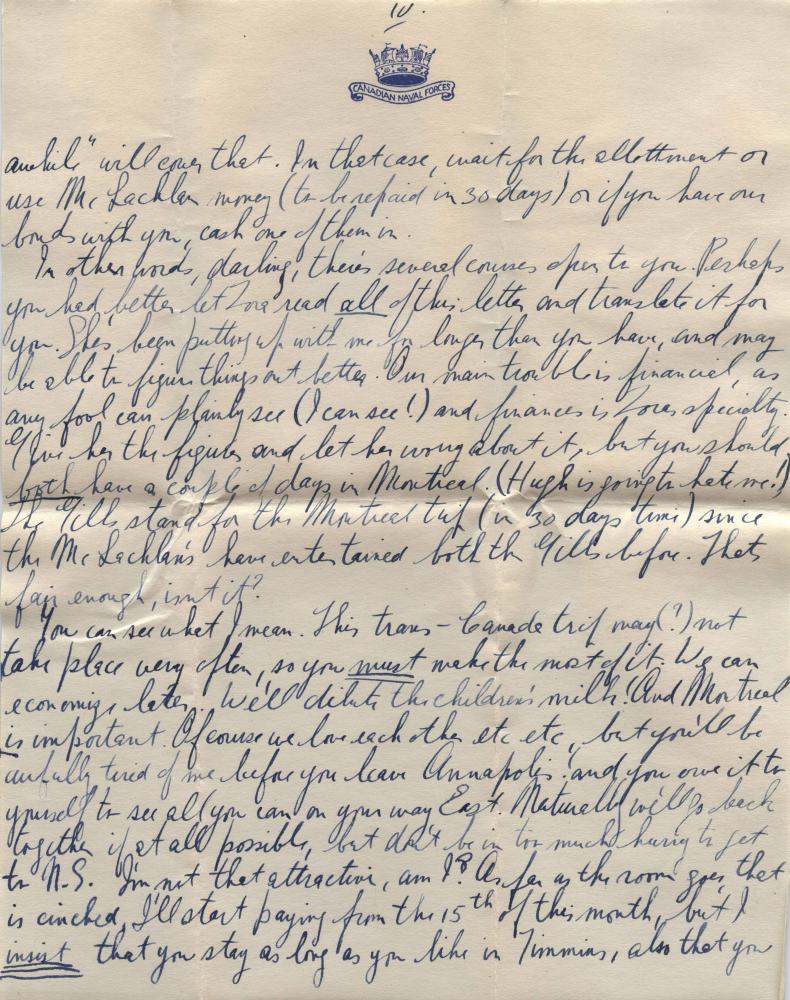 IV.
CANADIAN NAVAL FORCES
awhile" will cover that. In that case, wait for the allottment or
use McLachlan money (to be repaid in 30 days) or if you have our
bonds with you, cash one of them in.
In other words, darling, there's several courses open to you. Perhaps
you had better let Zora read all of this letter and translate it for
you. She's been putting up with me for longer than you have, and may
be able to figure things out better. Our main trouble is financial, as
any fool can plainly see (I can see!) and finances is Zoras specialty.
Give her the figures and let her worry about it, but you should
both have a couple of days in Montreal. (Hugh is going to hate me!)
The Gills stand for the Montreal trip (in 30 days time) since
the McLachlan's have entertained both the Gills before. Thats
fair enough, isn't it?
You can see what I mean. This trans-Canada trip may(?) not
take place very often, so you must make the most of it. We can
economize later. We'll dilute the children's milk! And Montreal
is important. Of course we love each other etc etc, but you'll be
awfully tired of me before you leave Annapolis! and you owe it to
yourself to see all you can on your way East. Naturally we'll go back
together if at all possible, but don't be in too much hurry to get
to N.S. I'm not that attractive, am I? As far as the room goes, that
is cinched, I'll start paying from the 15th of this month, but I
insist that you stay as long as you like in Timmins, also that you